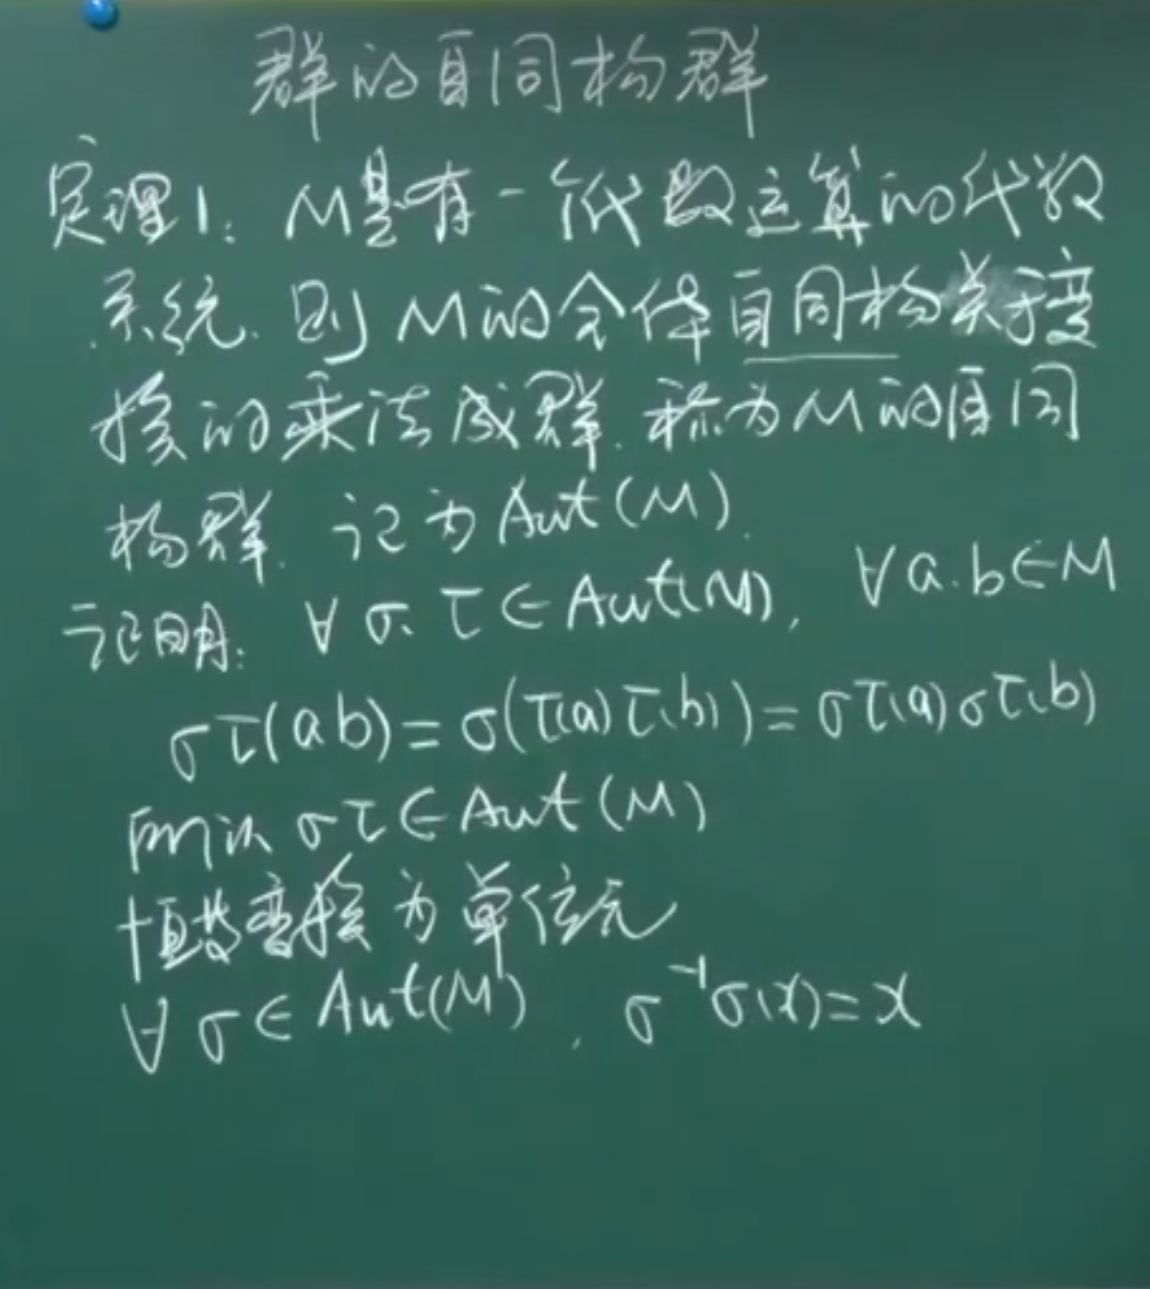 群的自同构群
定理1: M是有一个代数运算的代数
系统. 则M的全体自同构关于变
换的乘法成群. 称为M的自同
构群. 记为Aut(M).
证明: ∀σ. τ∈Aut(M), ∀a.b∈M
στ(ab)=σ(τ(a)τ(b))=στ(a)στ(b)
所以στ∈Aut(M)
恒等变换为单位元
∀σ∈Aut(M), σ⁻¹σ(x)=x